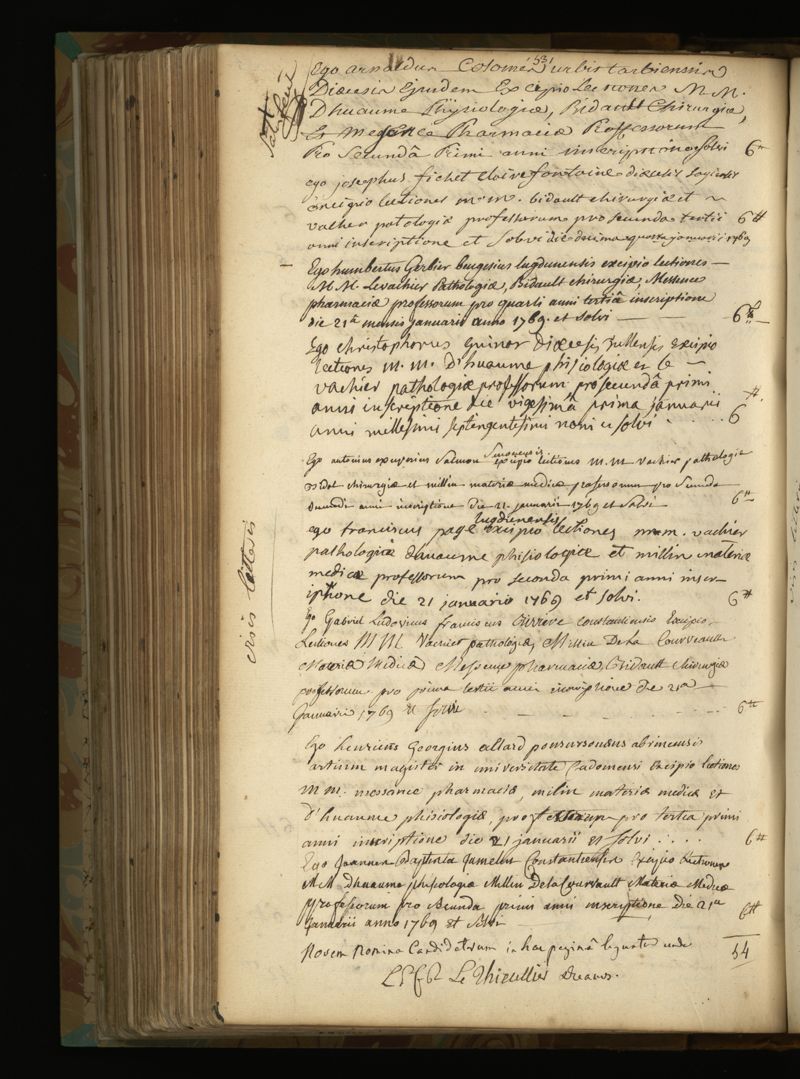 Ego arnaldus Colomés urbis tarbiensis
Dioecesis Ejusdem Excipio Lectiones M.M.
Dhuaume Physiologiæ, Bidault Chirurgiæ,
Et Messence Pharmaciæ Professorum
Pro Secundâ Primi anni inscriptione et solvi 6tt
ego josephus fichet clairefontaine diœcesis sagiensis
excipio lectiones m.m. bidault chirurgiæ et
vacher patologiæ professorum pro secunda tertii 6tt
anni inscriptione et Solvi die decima quarta januarii 1769
Ego humbertus Gerbier bugesius lugdunensis excipio lectiones
M.M. Levachier Pathologiæ, Bidault chirurgiæ, Messence
pharmaciæ professorum pro quarti anni tertiâ inscriptione
die 21â mensis januarii anno 1769. et solvi 6tt
Ego christophorus guinot diœcesis tullensis excipio
lectiones m.m. d'huaume phisiologiæ et le
vachier pathologiæ professorum pro secundâ primi
anni inscriptione die vigesimâ prima januarii
anni millesimi septingentesimi noni et solvi 6tt
Ego antonius exuperius Salmon Senonensis excipio lectiones m.m vachier pathologiæ
Bidot chirurgiæ et millin materiæ medicæ professorum pro Secunda
Secundi anni inscriptione die 21 januarii 1769 et Solvi 6tt
ego franciscus page lugdunensis excipio lectiones m.m. vachier
pathologiæ dhuaume phisiologiæ et millin materiæ
medicæ professorum pro seconda primi anni inscri-
iptione die 21 januario 1769 et solvi. 6tt
Ego Gabriel Ludovicus franciscus constantiensis Excipio
Lectiones MM Vachier pathologiæ, Millin De La Courveault
Materiæ Medicæ Messence pharmaciæ Bidault chirurgiæ
professorum pro prima tertii anni inscriptione die 21a
Januarii 1769 et solvi 6tt
Ego henricus Georgius allard abrincensis
artium magister in universitate Cadomensi Excipio lectiones
m m. messance pharmaciæ, milin materiæ medicæ et
d'huaume phisiologiæ, professorum pro tertia primi
anni inscriptione die 21 januarii et solvi 6tt
Ego Joannes Baptista Constantiensis Excipio Lectiones
M.M Dhuaume phisiologiæ Millin DelaCourvault Materiæ Medicæ
professorum pro secunda primi anni inscriptione Die 21a
Januarii anno 1769 et Solvi 6tt
Novem Nomina Candidatorum in hac paginâ leguntur 54
Le Thieullier Decanus.
visis litteris